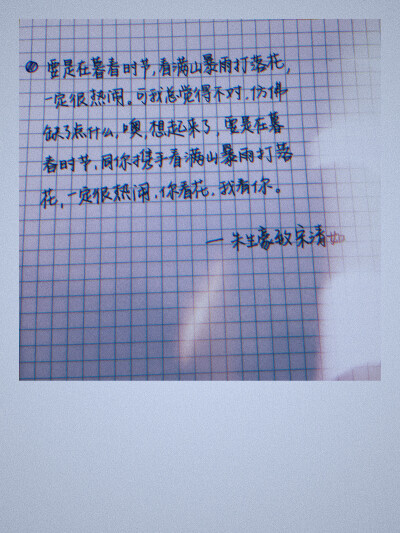 要是在暮春时节,看满山暴雨打落花,
一定很热闹。可我总觉得不对,仿佛
缺了点什么,噢,想起来了,要是在暮
春时节,同你携手看满山暴雨打落
花,一定很热闹,你看花,我看你。
—朱生豪致宋清如